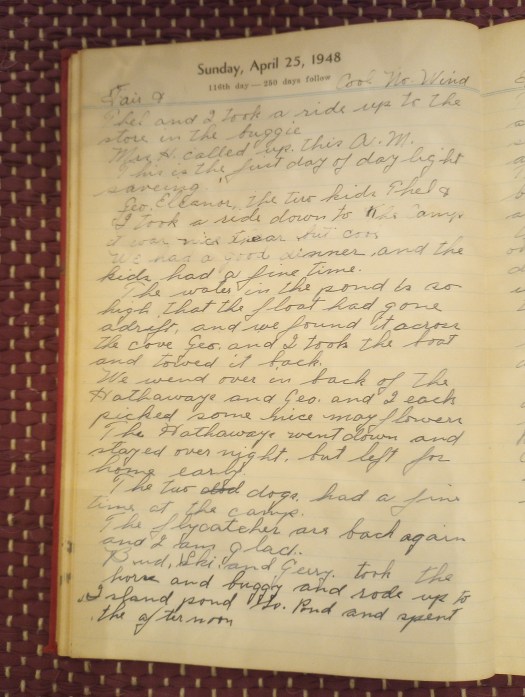 Sunday, April 25, 1948
116th day — 250 days follow
Fair & Cool No Wind
Phel and I took a ride up to the
store in the buggie
Mrs H. called up this A.M.
This is the first day of day light
saveing
Geo, Eleanor, the two kids Phel &
I took a ride down to the Camp
it was nice but cool
We had a good dinner, and the
kids had a fine time.
The water in the pond is so
high, that the float had gone
adrift, and we found it across
the cove Geo. and I took the boat
and towed it back.
We wend over in back of the
Hathaways and Geo. and I each
picked some nice mayflowers
The Hathaways went down and
stayed over night, but left for
home early.
The two dogs had a fine
time, at the camp.
The flycatcher are back again
and I am glad.
Bud, Ski and Gerry. took the
horse and buggy and rode up to
Island pond Pond and spent
the afternoon